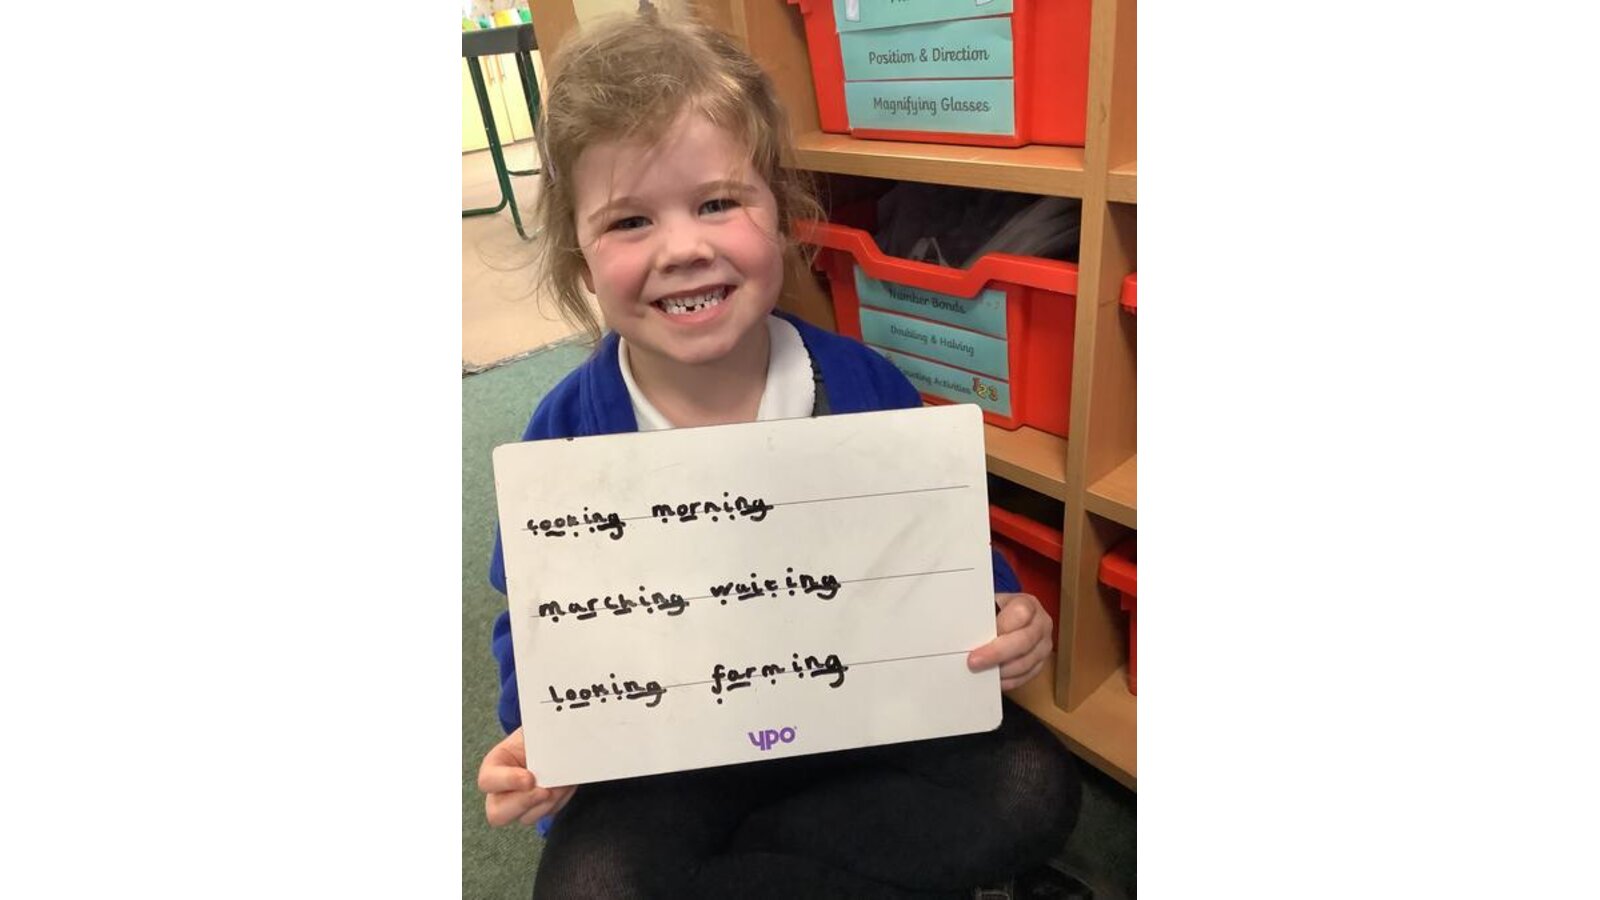 Position & Direction
Magnifying Glasses
Number Bonds
Doubling & Halving
Counting Activities 123
cooking morning
marching waiting
looking farming
ypo